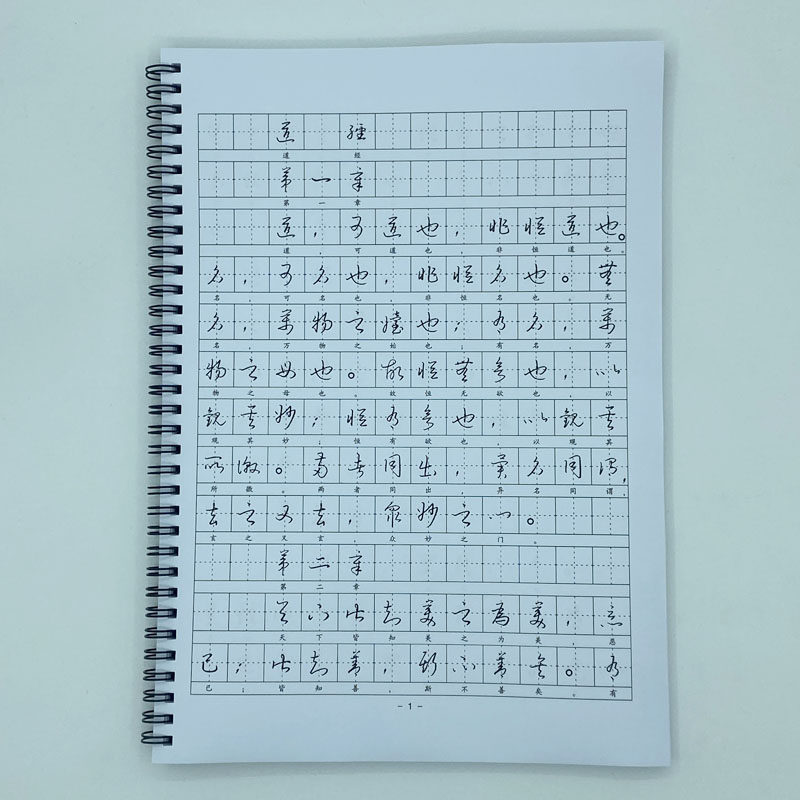 道經
道经
第一章
第一章
道，可道也，非恆道也。
道，可道也，非恒道也。
名，可名也，非恆名也。無
名，可名也，非恒名也。无
名，萬物之始也；有名，萬
名，万物之始也；有名，万
物之母也。故恆無欲也，以
物之母也。故恒无欲也，以
觀其妙；恆有欲也，以觀其
观其妙；恒有欲也，以观其
所徼。兩者同出，異名同謂，
所徼。两者同出，异名同谓，
玄之又玄，眾妙之門。
玄之又玄，众妙之门。
第二章
第二章
天下皆知美之為美，惡
天下皆知美之为美，恶
已；皆知善，斯不善矣。有
已；皆知善，斯不善矣。有
- 1 -